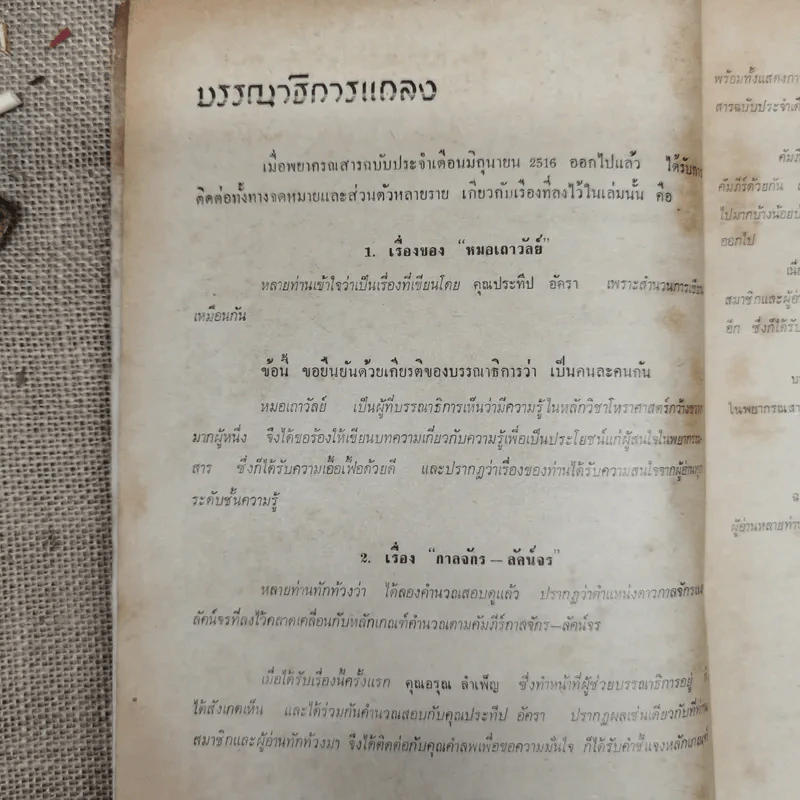 บรรณาธิการแถลง
เมื่อพยากรณสารฉบับประจำเดือนมิถุนายน 2516 ออกไปแล้ว ได้รับการ
ติดต่อทั้งทางจดหมายและส่วนตัวหลายราย เกี่ยวกับเรื่องที่ลงไว้ในเล่มนั้น คือ
1. เรื่องของ "หมอเถาวัลย์"
หลายท่านเข้าใจว่าเป็นเรื่องที่เขียนโดย คุณประทีป อัครา เพราะสำนวนการเขียน
เหมือนกัน
ข้อนี้ ขอยืนยันด้วยเกียรติของบรรณาธิการว่า เป็นคนละคนกัน
หมอเถาวัลย์ เป็นผู้ที่บรรณาธิการเห็นว่ามีความรู้ในหลักวิชาโหราศาสตร์กว้างขวาง
มากผู้หนึ่ง จึงได้ขอร้องให้เขียนบทความเกี่ยวกับความรู้เพื่อเป็นประโยชน์แก่ผู้สนใจในพยากรณ-
สาร ซึ่งก็ได้รับความเอื้อเฟื้อด้วยดี และปรากฏว่าเรื่องของท่านได้รับความสนใจจากผู้อ่านทุก
ระดับชั้นความรู้
2. เรื่อง "กาลจักร — ลัคน์จร"
หลายท่านทักท้วงว่า ได้ลองคำนวณสอบดูแล้ว ปรากฏว่าตำแหน่งดาวกาลจักรลง
ลัคน์จรที่ลงไว้คลาดเคลื่อนกับหลักเกณฑ์คำนวณตามคัมภีร์กาลจักร—ลัคน์จร
เมื่อได้รับเรื่องนี้ครั้งแรก คุณอรุณ ลำเพ็ญ ซึ่งทำหน้าที่ผู้ช่วยบรรณาธิการอยู่ ก็
ได้สังเกตเห็น และได้ร่วมกันคำนวณสอบกับคุณประทีป อัครา ปรากฏผลเช่นเดียวกับที่ท่าน
สมาชิกและผู้อ่านทักท้วงมา จึงได้ติดต่อกับคุณคำลพเพื่อขอความมั่นใจ ก็ได้รับคำชี้แจงหลักเกณฑ์
พร้อมทั้งแสดงกา
สารฉบับประจำเดื
คัมภี
คัมภีร์ด้วยกัน
ไปมากบ้างน้อยบ้
ออกไป
เนื่
สมาชิกและผู้อ่า
อีก ซึ่งก็ได้รับ
บ
ในพยากรณสา
ฉ
ผู้อ่านหลายท่า